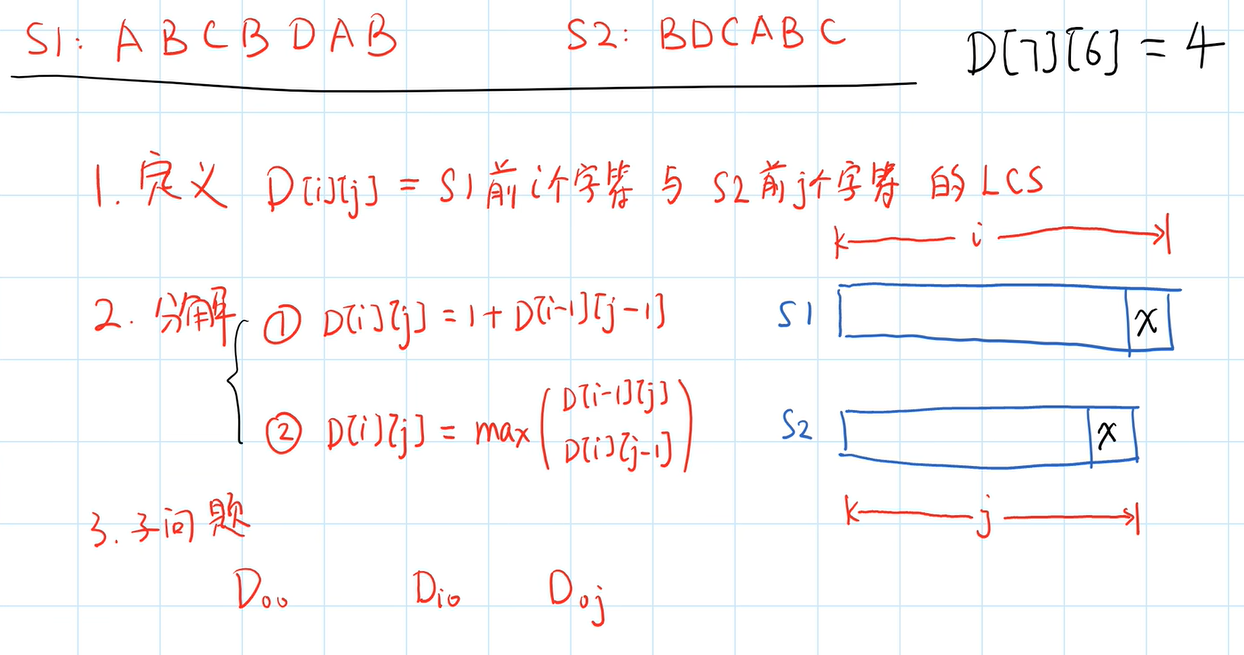 S1: A B C B D A B S2: B D C A B C D[7][6] = 4
1. 定义 D[i][j] = S1前i个字符 与 S2前j个字符 的LCS
i
2. 分解 ① D[i][j] = 1 + D[i-1][j-1]
S1 x
② D[i][j] = max ( D[i-1][j]
D[i][j-1] )
S2 x
j
3. 子问题
D₀₀ Dᵢ₀ D₀ⱼ